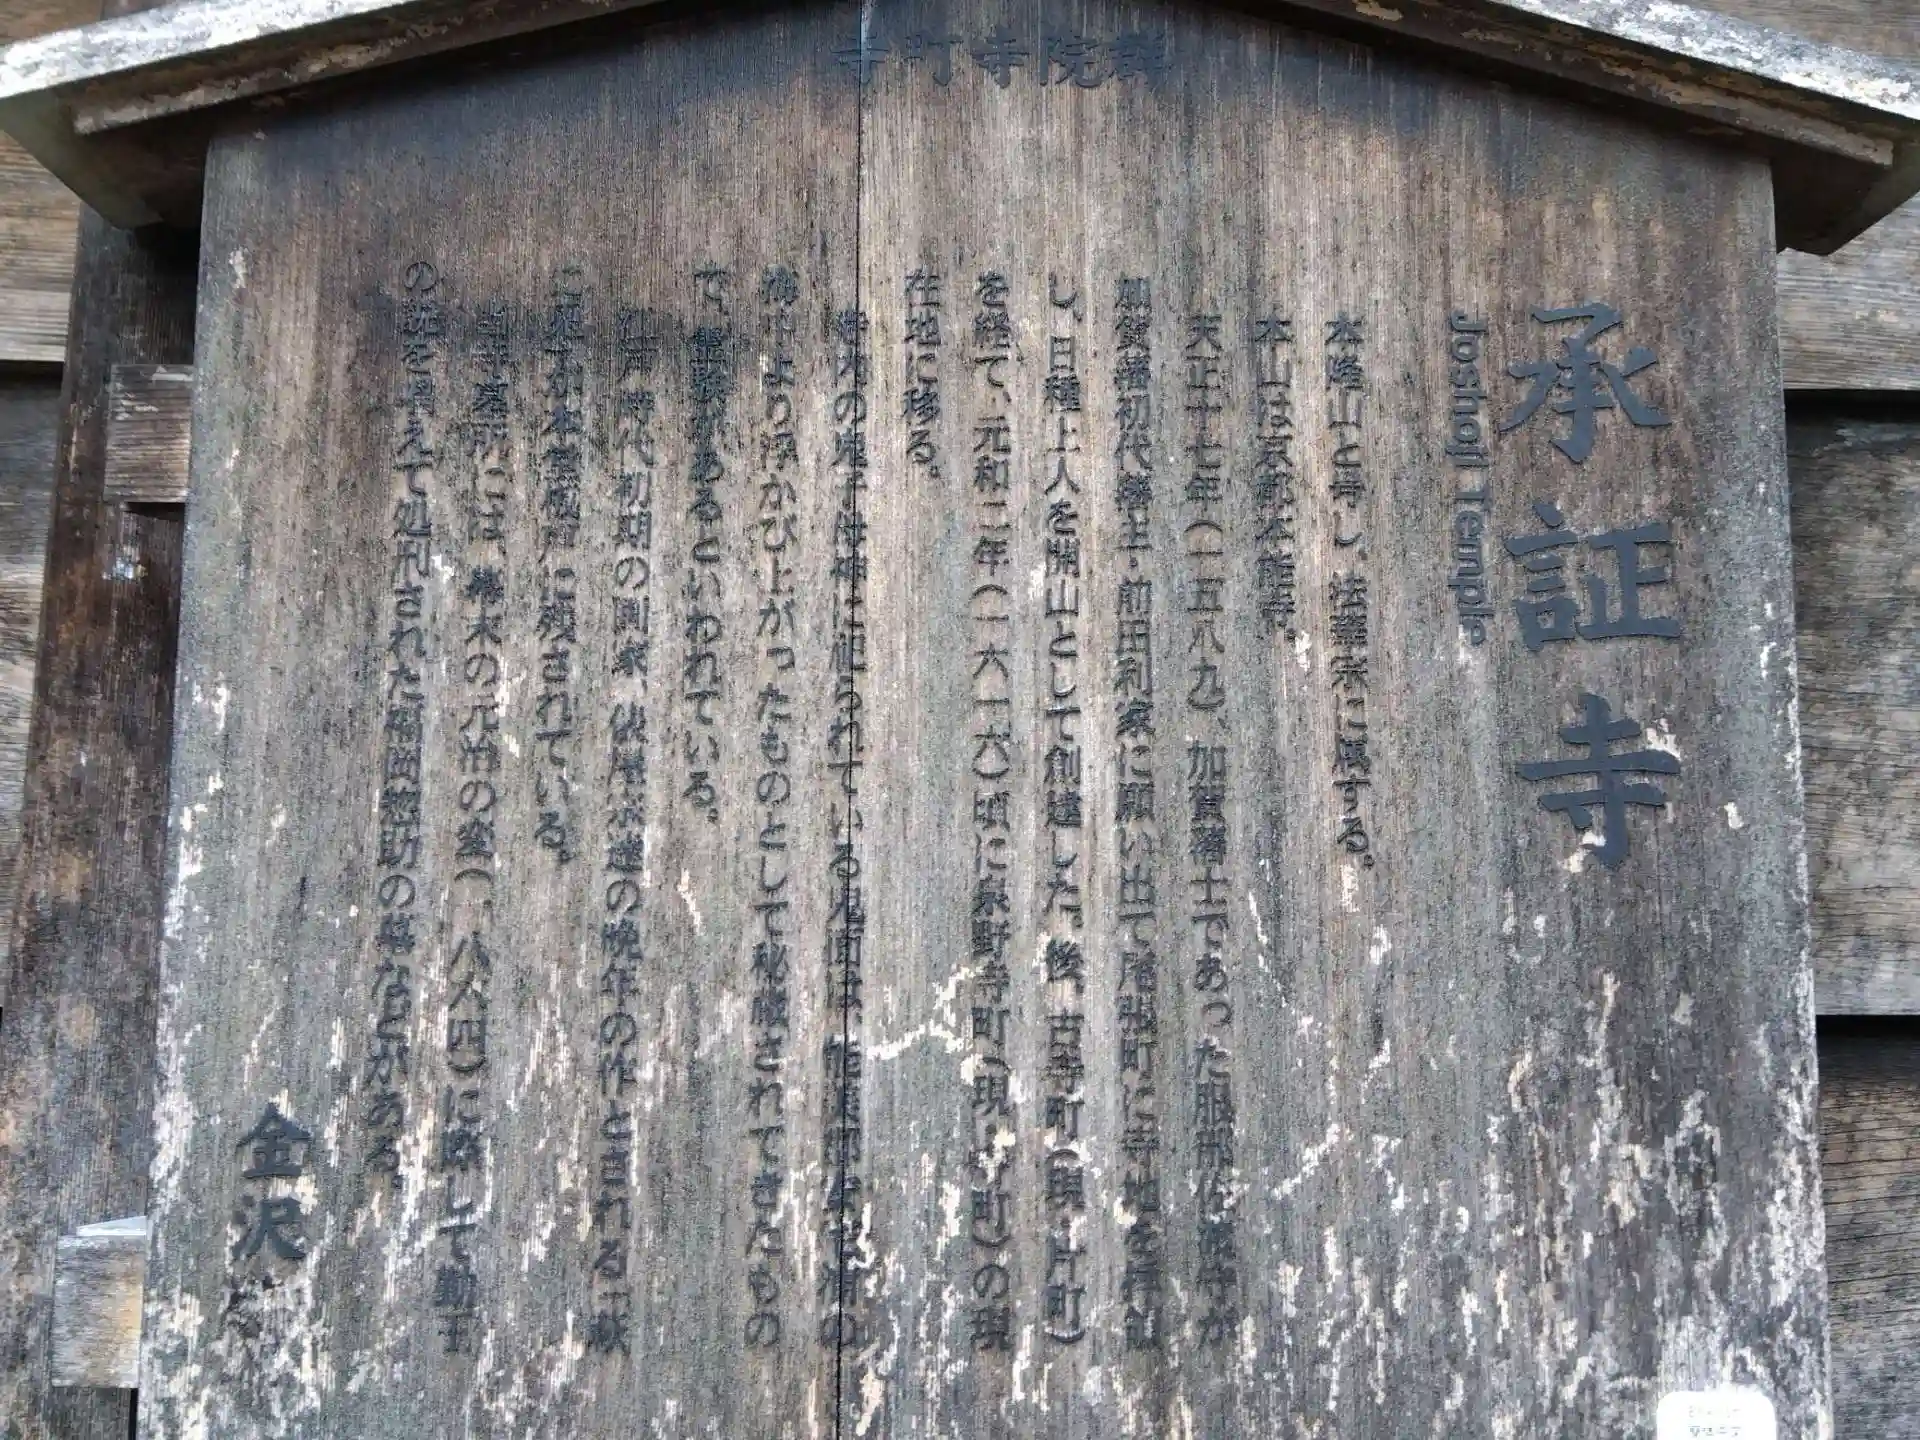 寺町寺院群
承証寺
Joshoji Temple
本隆山と号し、法華宗に属する。
本山は京都本能寺。
天正十七年(一五八九)、加賀藩士であった服部仏
加賀藩初代藩主・前田利家に願い出て尾張町に寺地を拝領
し、日種上人を開山として創建した。後、古寺町(現・片町)
を経て、元和二年(一六一六)頃に泉野寺町(現・寺町)の現
在地に移る。
寺内の鬼子母神に祀られている鬼面は、能
海中より浮かび上がったものとして秘蔵されてきたもの
で、霊験があるといわれている。
江戸時代初期の画家、俵屋宗達の晩年の作と言われる「萩
に兎」が本堂板戸に残されている。
当寺墓所には、幕末の元治の変(一八六四)に際して勤王
の説を唱えて処刑された福岡惣助の墓などがある。
金沢市